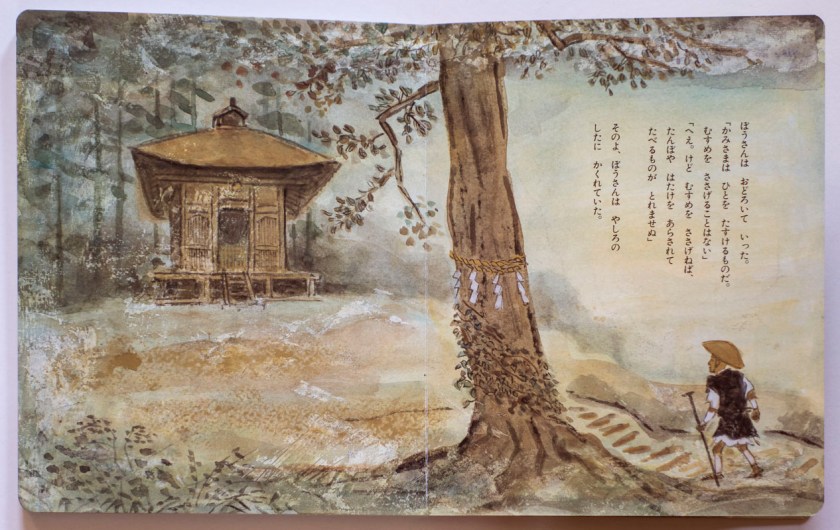 ぼうさんは　おどろいて　いった。
「かみさまは　ひとを　たすけるものだ。
むすめを　ささげることはない」
「へえ。けど　むすめを　ささげねば、
たんぼや　はたけを　あらされて
たべるものが　とれませぬ」
そのよ、ぼうさんは　やしろの
したに　かくれていた。